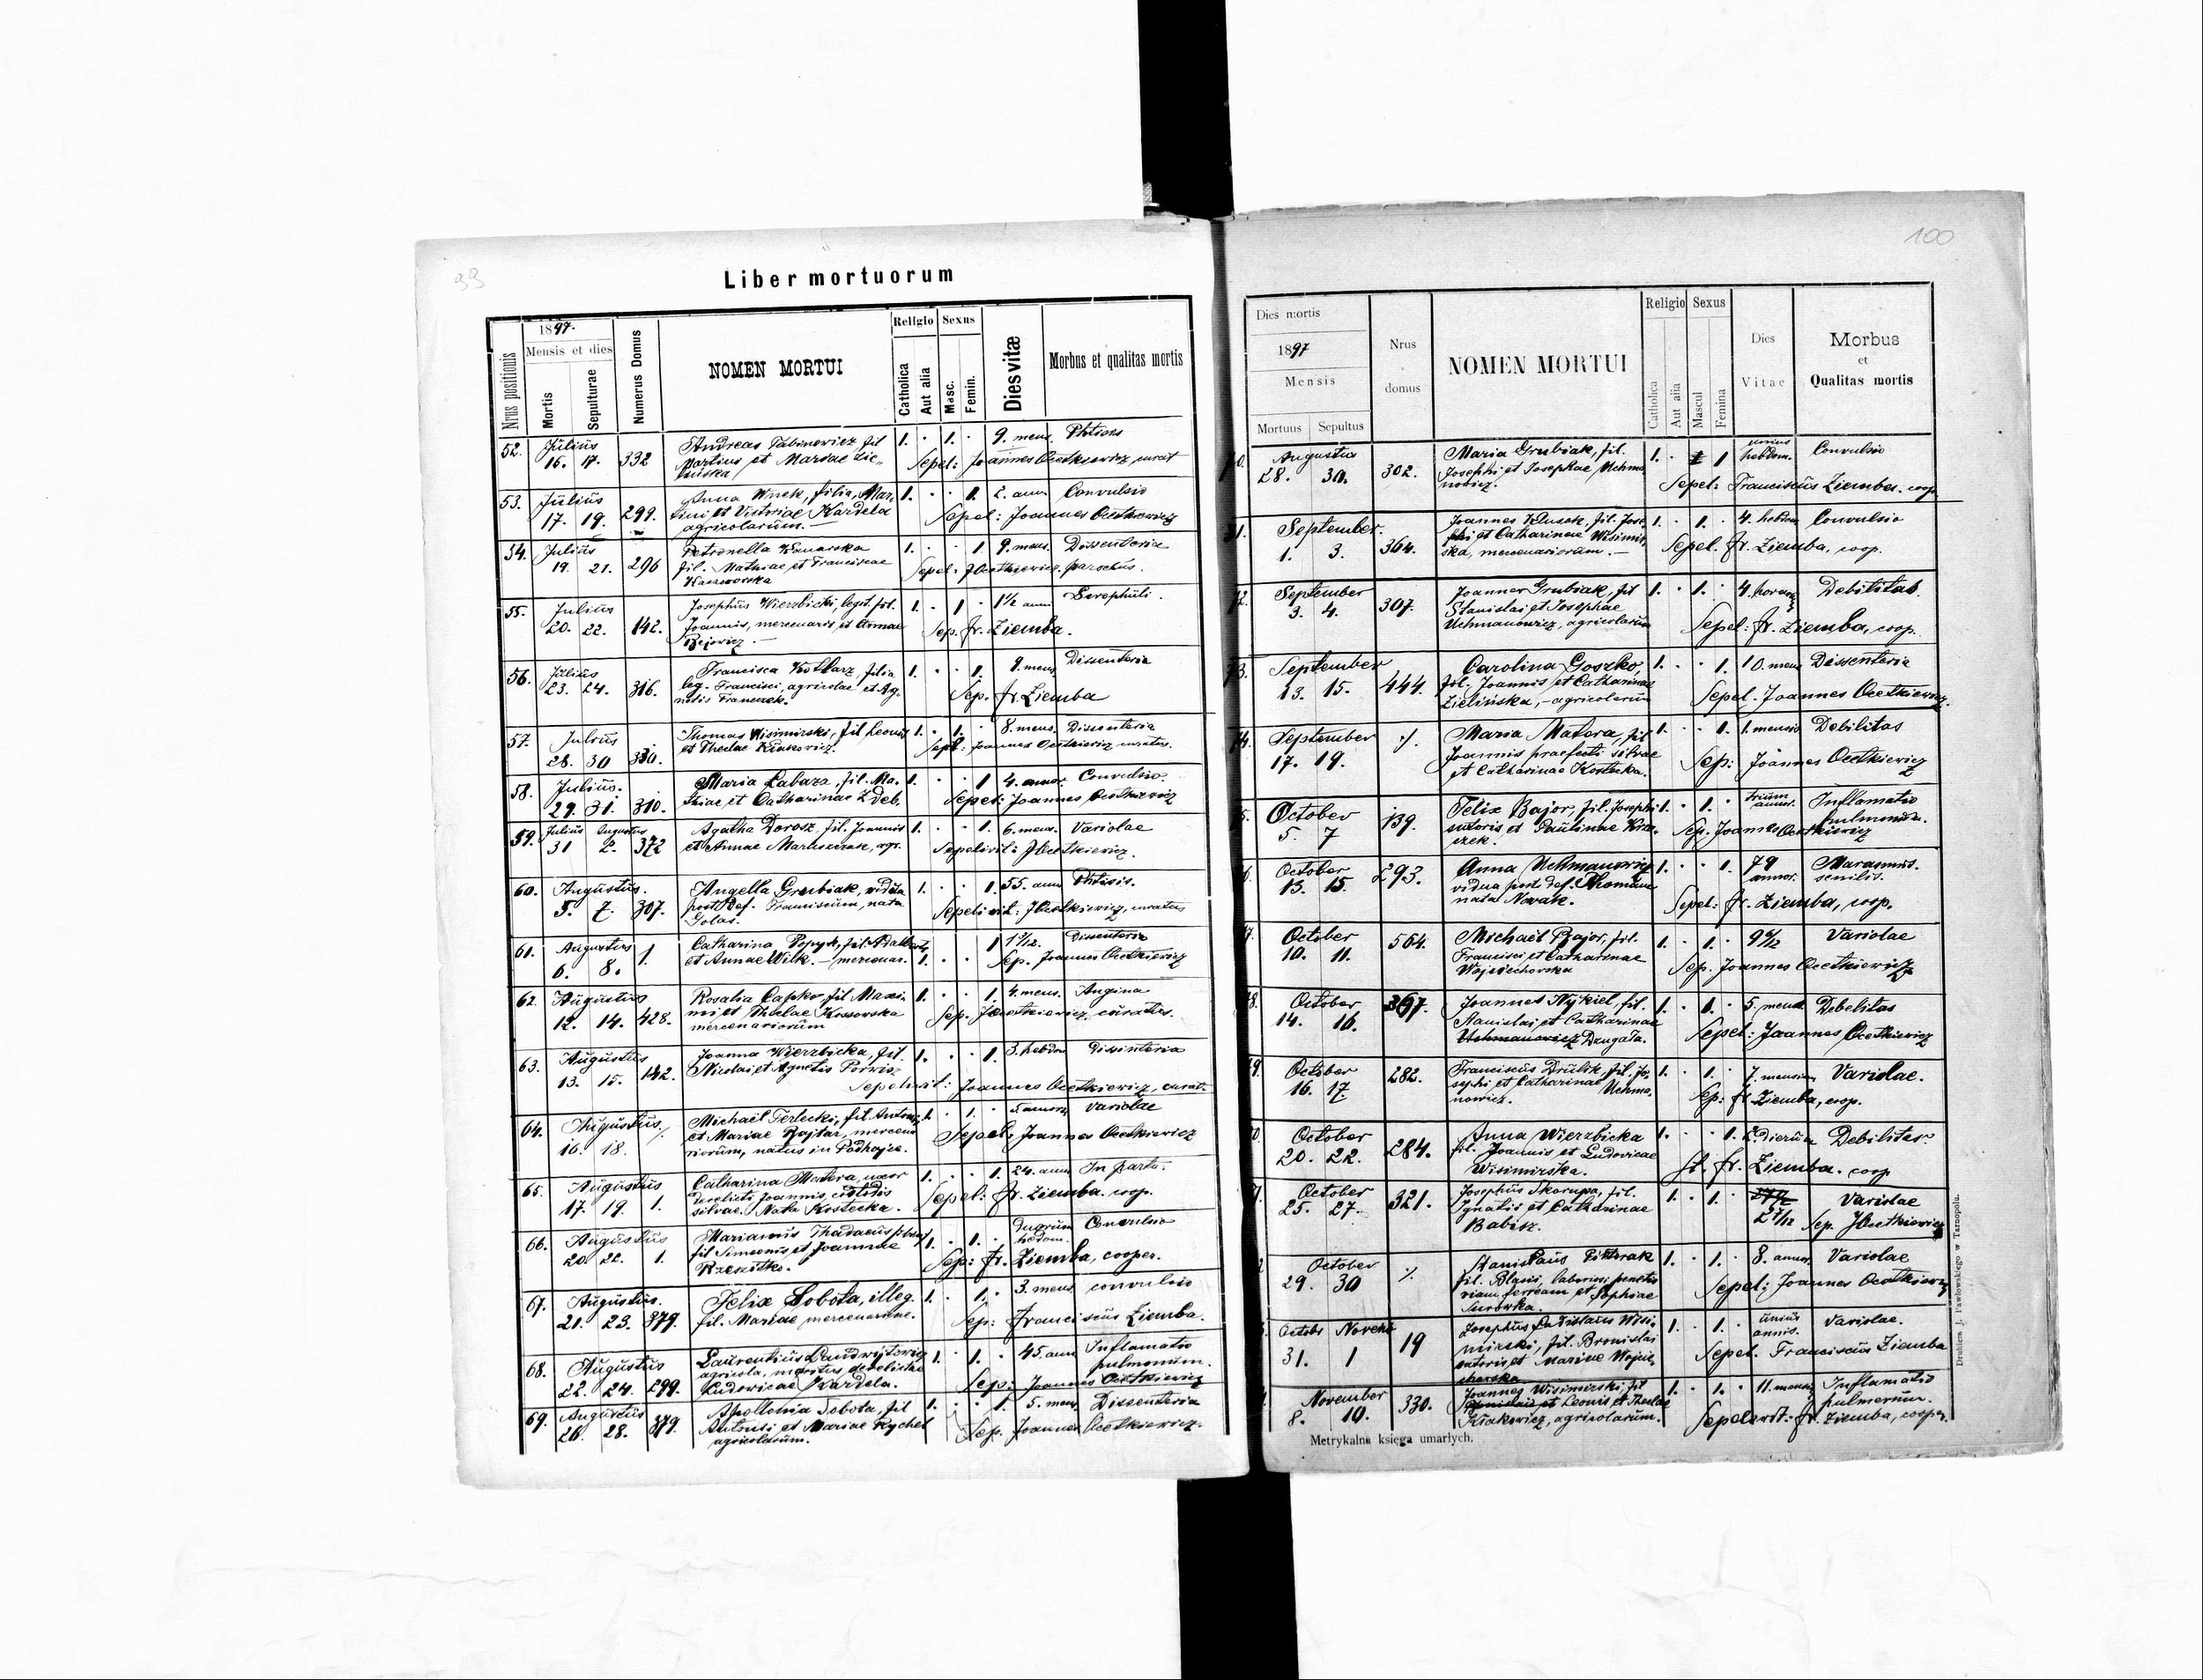 99
Liber mortuorum
Nrus positionis
1897.
Mensis et dies
Mortis
Sepulturae
Numerus Domus
NOMEN MORTUI
Religio
Catholica
Aut alia
Sexus
Masc.
Femin.
Dies vitæ
Morbus et qualitas mortis
52. Julius 16. 17. 332 Andreas Tabinowicz fil 1. · 1. · 9. mens. Phtisis
Martini et Mariae Zie- Sepel: Joannes Ocetkiewicz, curat
53. Julius 17. 19. 299. Anna Wnek, filia Mar- 1. · · 1. 2. ann. Convulsio
tini et Victoriae Kardela Sepel: Joannes Ocetkiewicz
agricolarum. —
54. Julius 19. 21. 296 Petronella 1. · · 1. 9. mens. Dissenteria
fil. Mathiae et Franciscae Sepel: J Ocetkiewicz. parochus.
55. Julius 20. 22. 142. Josephus Wierzbicki, legit. fil. 1. · 1 · 1 1/2 anni Scrophuli.
Joannis, mercenarii et Annae Sep. fr. Ziemba.
56. Julius 23. 24. 316. Francisca Kotlarz, filia 1. · · 1. 9. mens. Dissenteria
leg. Francisci, agricolae et Ag- Sep. fr. Ziemba
netis Franczek.
57. Julius 28. 30 330. Thomas Wisimirski, fil Leonis 1. · 1. · 8. mens. Dissenteria
et Theclae Krakowicz. Sepel: Joannes Ocetkiewicz curatus.
58. Julius. 29. 31. 310. Maria Labaza, fil. Ma- 1. · · 1 4. annor. Convulsio.
thiae et Catharinae Zdeb. Sepel: Joannes Ocetkiewicz
59. Julius 31 Augustus 2. 372 Agatha Dorosz, fil. Joannis 1. · · 1. 6. mens. Variolae
et Annae agr. Sepelivit: J Ocetkiewicz.
60. Augustus. 5. 7. 307. Angella Grubiak, vidua 1. · · 1. 55. ann Phtisis.
post def. Franciscum, nata Sepelivit: J Ocetkiewicz, curatus
Golas.
61. Augustus 6. 8. 1. Catharina Popyk, fil. Adalberti 1 1 9/12. Dissenteria
et Annae Wilk. — mercenar. 1. · · Sep. Joannes Ocetkiewicz
62. Augustus 12. 14. 428. Rosalia Capko fil Maxi- 1. · · 1. 4. mens. Angina
mi et Theclae Kossovska Sep. J Ocetkiewicz curatus.
mercenariorum
63. Augustus 13. 15. 142. Joanna Wierzbicka, fil. 1. · · 1. 3. hebdom Dissinteria
Nicolai et Agnetis
Sepelivit: Joannes Ocetkiewicz, curat.
64. Augustus. 16. 18. ·/· Michael Terlecki, fil. Antonii 1. · 1. · 5. annorum Variolae
et Mariae Bajtar, mercena- Sepel: Joannes Ocetkiewicz
riorum, natus in Podhajce.
65. Augustus 17. 19. 1. Catharina Matera, uxor 1. · · 1. 24. ann In partu.
derelicti Joannis, custodis Sepel: fr. Ziemba. coop.
silvae. Nata Kostecka.
66. Augustus 20. 22. 1. Marianus Thadaeus 1. · 1. · duorum hebdom. Convulsio
fil Simeonis et Joannae Sep: fr. Ziemba, cooper.
Rzeszutko.
67. Augustus. 21. 23. 379. Felix Sobota, illeg. 1. · 1. · 3. mens. convulsio
fil. Mariae mercenariae. Sep: Franciscus Ziemba.
68. Augustus 22. 24. 299. Laurentius 1. · 1. · 45. ann Inflamatio
agricola, maritus derelictae pulmonum.
Ludovicae Kardela. Sep: Joannes Ocetkiewicz
69. Augustus 26. 28. 379. Apollonia Sobota, fil 1. · · 1. 5. mens Dissenteria
Antonii et Mariae Rychel Sep. Joannes Ocetkiewicz.
agricolarum.
100
Dies mortis
1897
Mensis
Mortuus Sepultus
Nrus domus
NOMEN MORTUI
Religio
Catholica
Aut alia
Sexus
Mascul
Femina
Dies Vitae
Morbus
et
Qualitas mortis
0. Augustus 28. 30. 302. Maria Grubiak, fil. 1. · 1 unius hebdom. Convulsio
Josephi et Josephae Uchma-
nowicz. Sepel: Franciscus Ziemba. coop.
1. September. 1. 3. 364. Joannes Klusek, fil. Jose- 1. · 1. · 4. hebdom Convulsio
phi et Catharinae Wisimir- Sepel. fr. Ziemba, coop.
ska, mercenariorum. —
72. September 3. 4. 307. Joannes Grubiak, fil 1. · 1. · 4. horarum Debilitas.
Stanislai et Josephae
Uchmanowicz, agricolarum Sepel: fr. Ziemba, coop.
73. September 13. 15. 444. Carolina Goszko 1. · · 1. 10. mens Dissenteria
fil. Joannis et Catharinae
Zielińska, — agricolarum Sepel. Joannes Ocetkiewicz.
74. September 17. 19. ·/· Maria Matera, fil 1. · · 1. 1. mensis Debilitas
Joannis praefecti silvae Sep: Joannes Ocetkiewicz
et Catharinae Kostecka.
5. October 5. 7 139. Felix Bajor, fil. Josephi 1. · 1. · trium annor. Inflamatio
sutoris et Paulinae Kra- pulmonum.
czek. Sep. Joannes Ocetkiewicz
6. October 13. 15. 293. Anna Uchmanowicz 1. · · 1. 79 annor. Marasmus.
vidua post def. Thomam senilis.
nata Nowak. Sepel: fr. Ziemba, coop.
7. October 10. 11. 564. Michael Bajor, fil. 1. · 1. · Variolae
Francisci et Catharinae
Wojciechovska Sep. Joannes Ocetkiewicz
78. October 14. 16. 397. Joannes Nykiel, fil. 1. · 1. · 5. mens Debelitas
Stanislai et Catharinae
Uchmanowicz Drugala. Sepel: Joannes Ocetkiewicz
9. October 16. 17. 282. Franciscus Drulik, fil. Jo- 1. · 1. · 7. mensium Variolae.
sephi et Catharinae Uchma-
nowicz. Sep: fr. Ziemba, coop.
0. October 20. 22. 284. Anna Wierzbicka 1. · · 1. 2. dierum Debilitas
fil. Joannis et Ludovicae
Wisimirska. fr. Ziemba. coop
1. October 25. 27. 321. Josephus Skorupa, fil. 1. · 1. · Variolae
Ignatii et Catharinae 2 7/12 Sep. J Ocetkiewicz
Babisz.
2 October 29. 30 ·/. Stanislaus 1. · 1. · 8. annor Variolae
fil. Blasii, laborini penes
viam ferream et Sophiae Sepel: Joannes Ocetkiewicz
Surowka.
Octobr 31. Novemb 1 19 Josephus Ladislaus Wisi- 1. · 1. · unius annis. Variolae.
mirski, fil. Bronislai
sutoris et Mariae Wojcie- Sepel. Franciscus Ziemba
chovska
November 8. 10. 330. Joannes Wisimirski, fil 1. · 1. · 11. mensium Inflamatio
Leonis et Theclae pulmonum.
Krakowicz, agricolarum. Sepelevit: fr. Ziemba, cooper.
Metrykalna księga umarłych.
Drukiem J. Pawłowskiego w Tarnopolu.